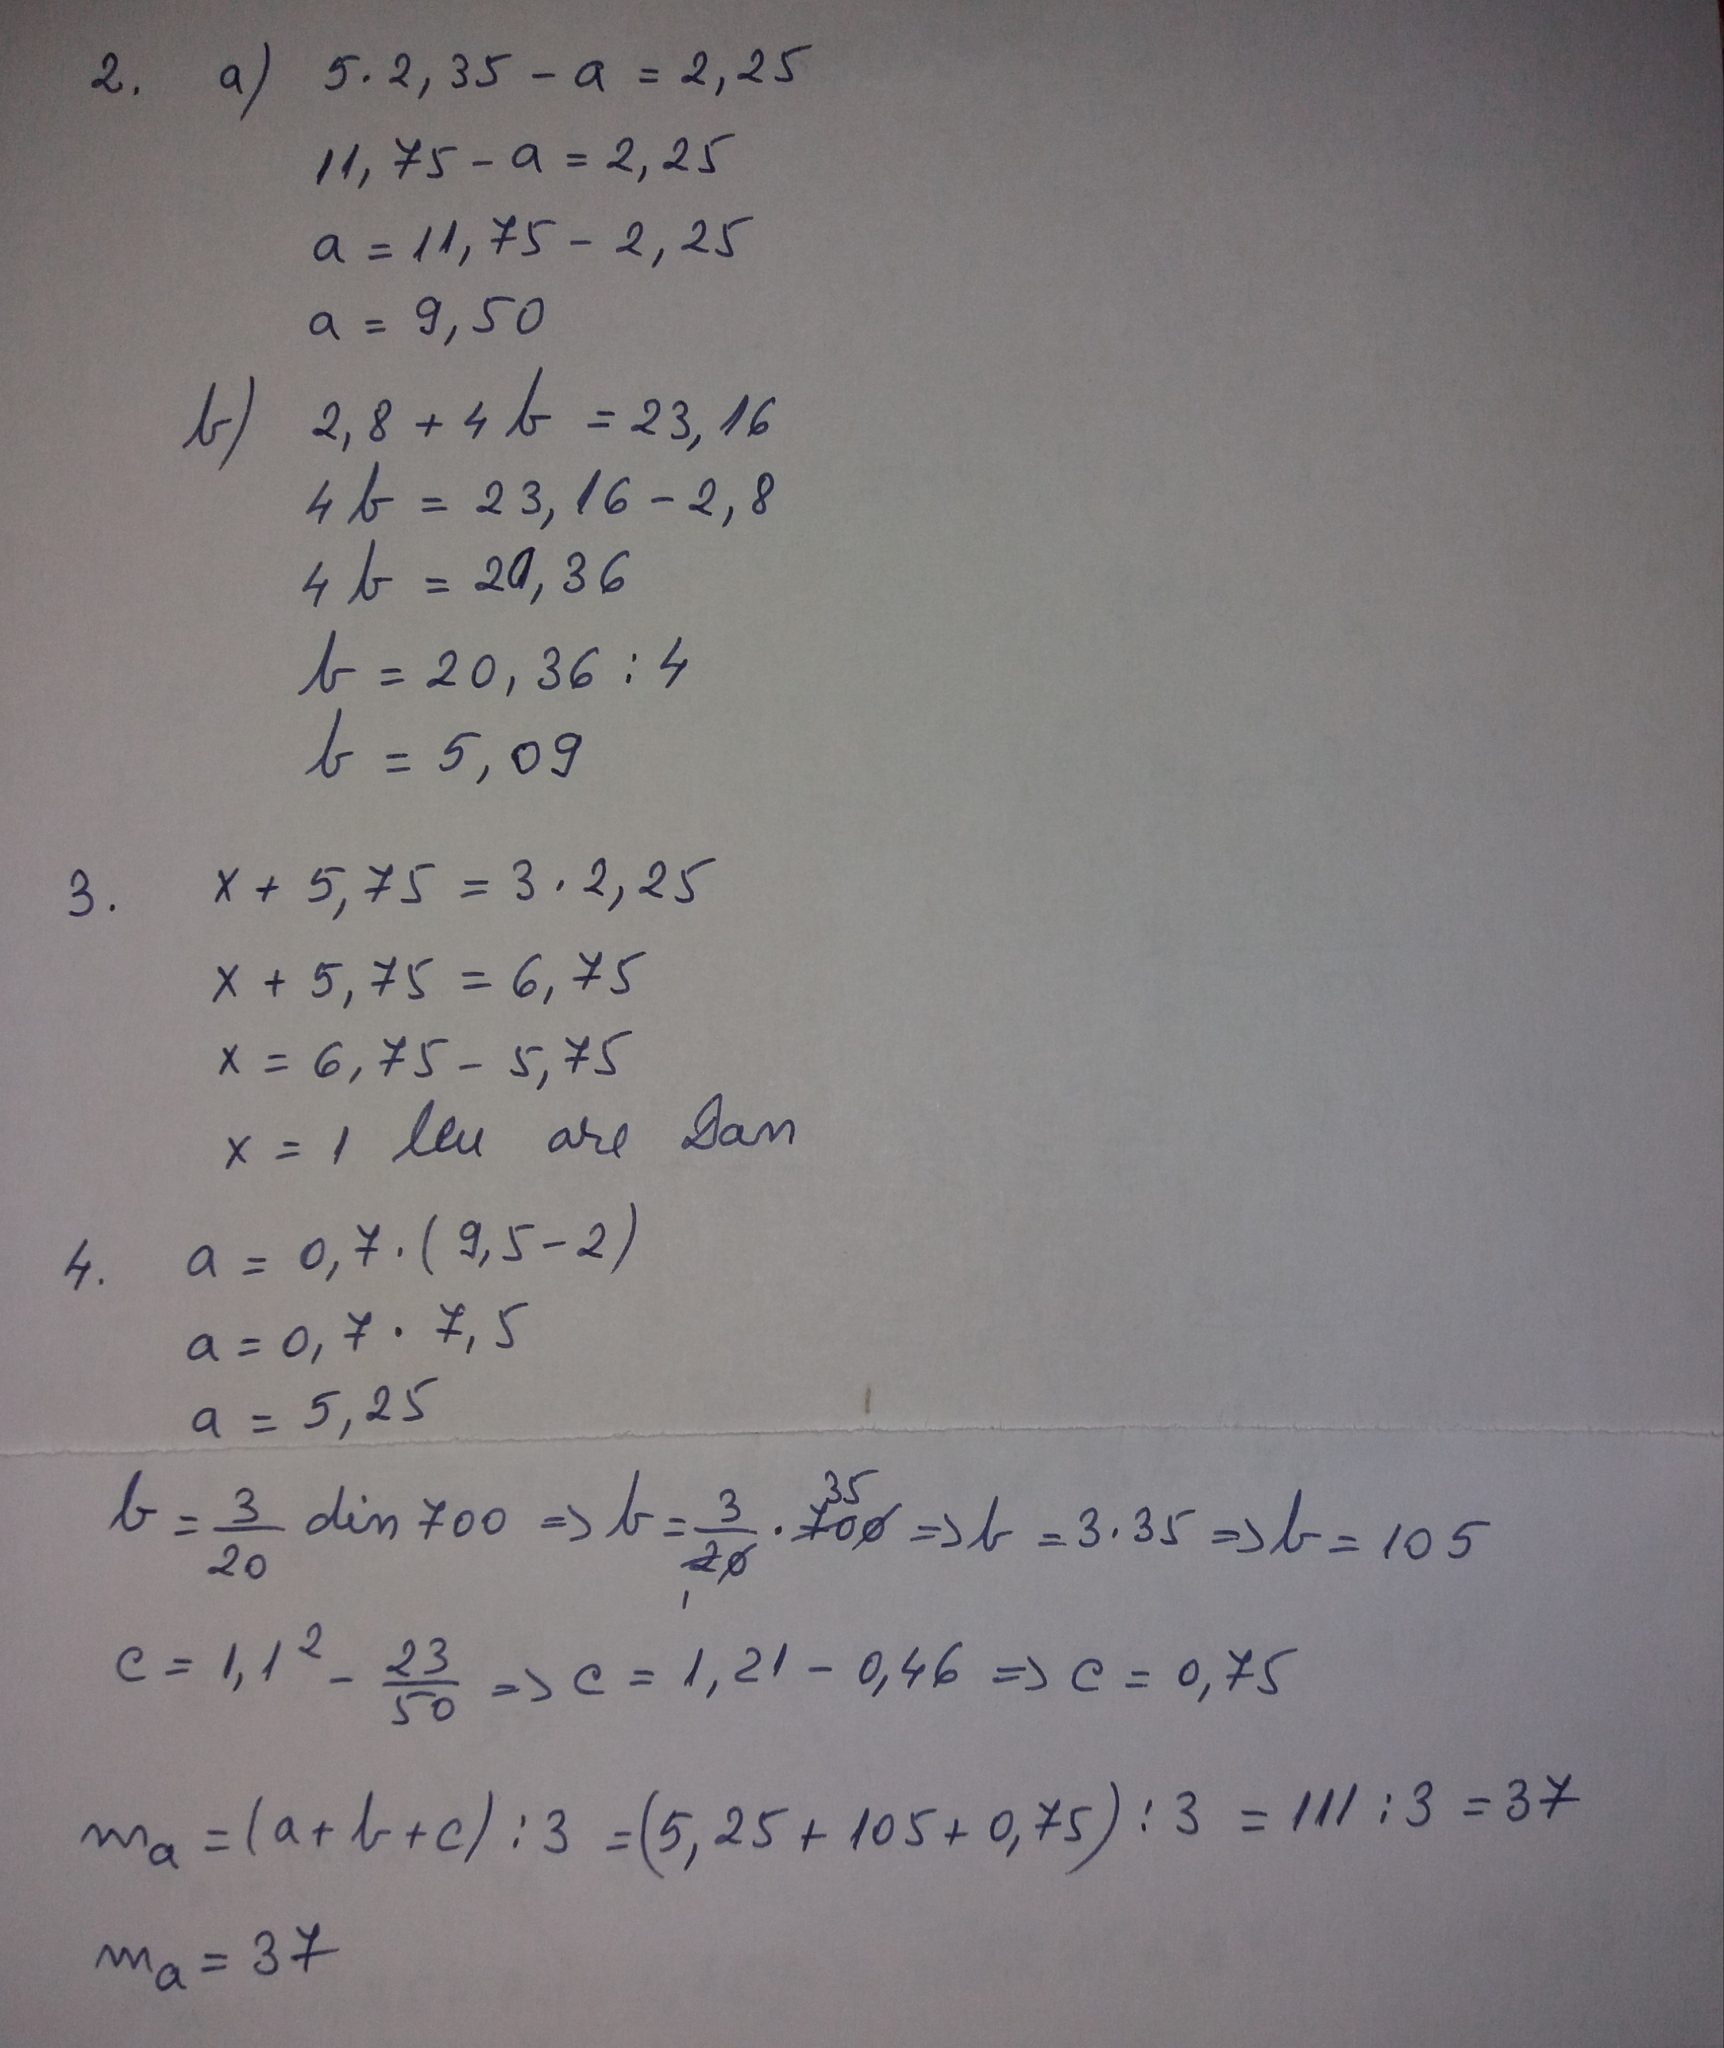 2. a) 5·2,35 - a = 2,25
11,75 - a = 2,25
a = 11,75 - 2,25
a = 9,50
b) 2,8 + 4b = 23,16
4b = 23,16 - 2,8
4b = 20,36
b = 20,36 : 4
b = 5,09
3. x + 5,75 = 3·2,25
x + 5,75 = 6,75
x = 6,75 - 5,75
x = 1 leu are Dan
4. a = 0,7·(9,5-2)
a = 0,7·7,5
a = 5,25
b = 3/20 din 700 => b = 3/20 1 · 700 35 => b = 3·35 => b = 105
c = 1,1² - 23/50 => c = 1,21 - 0,46 => c = 0,75
ma = (a+b+c) : 3 = (5,25 + 105 + 0,75) : 3 = 111 : 3 = 37
ma = 37